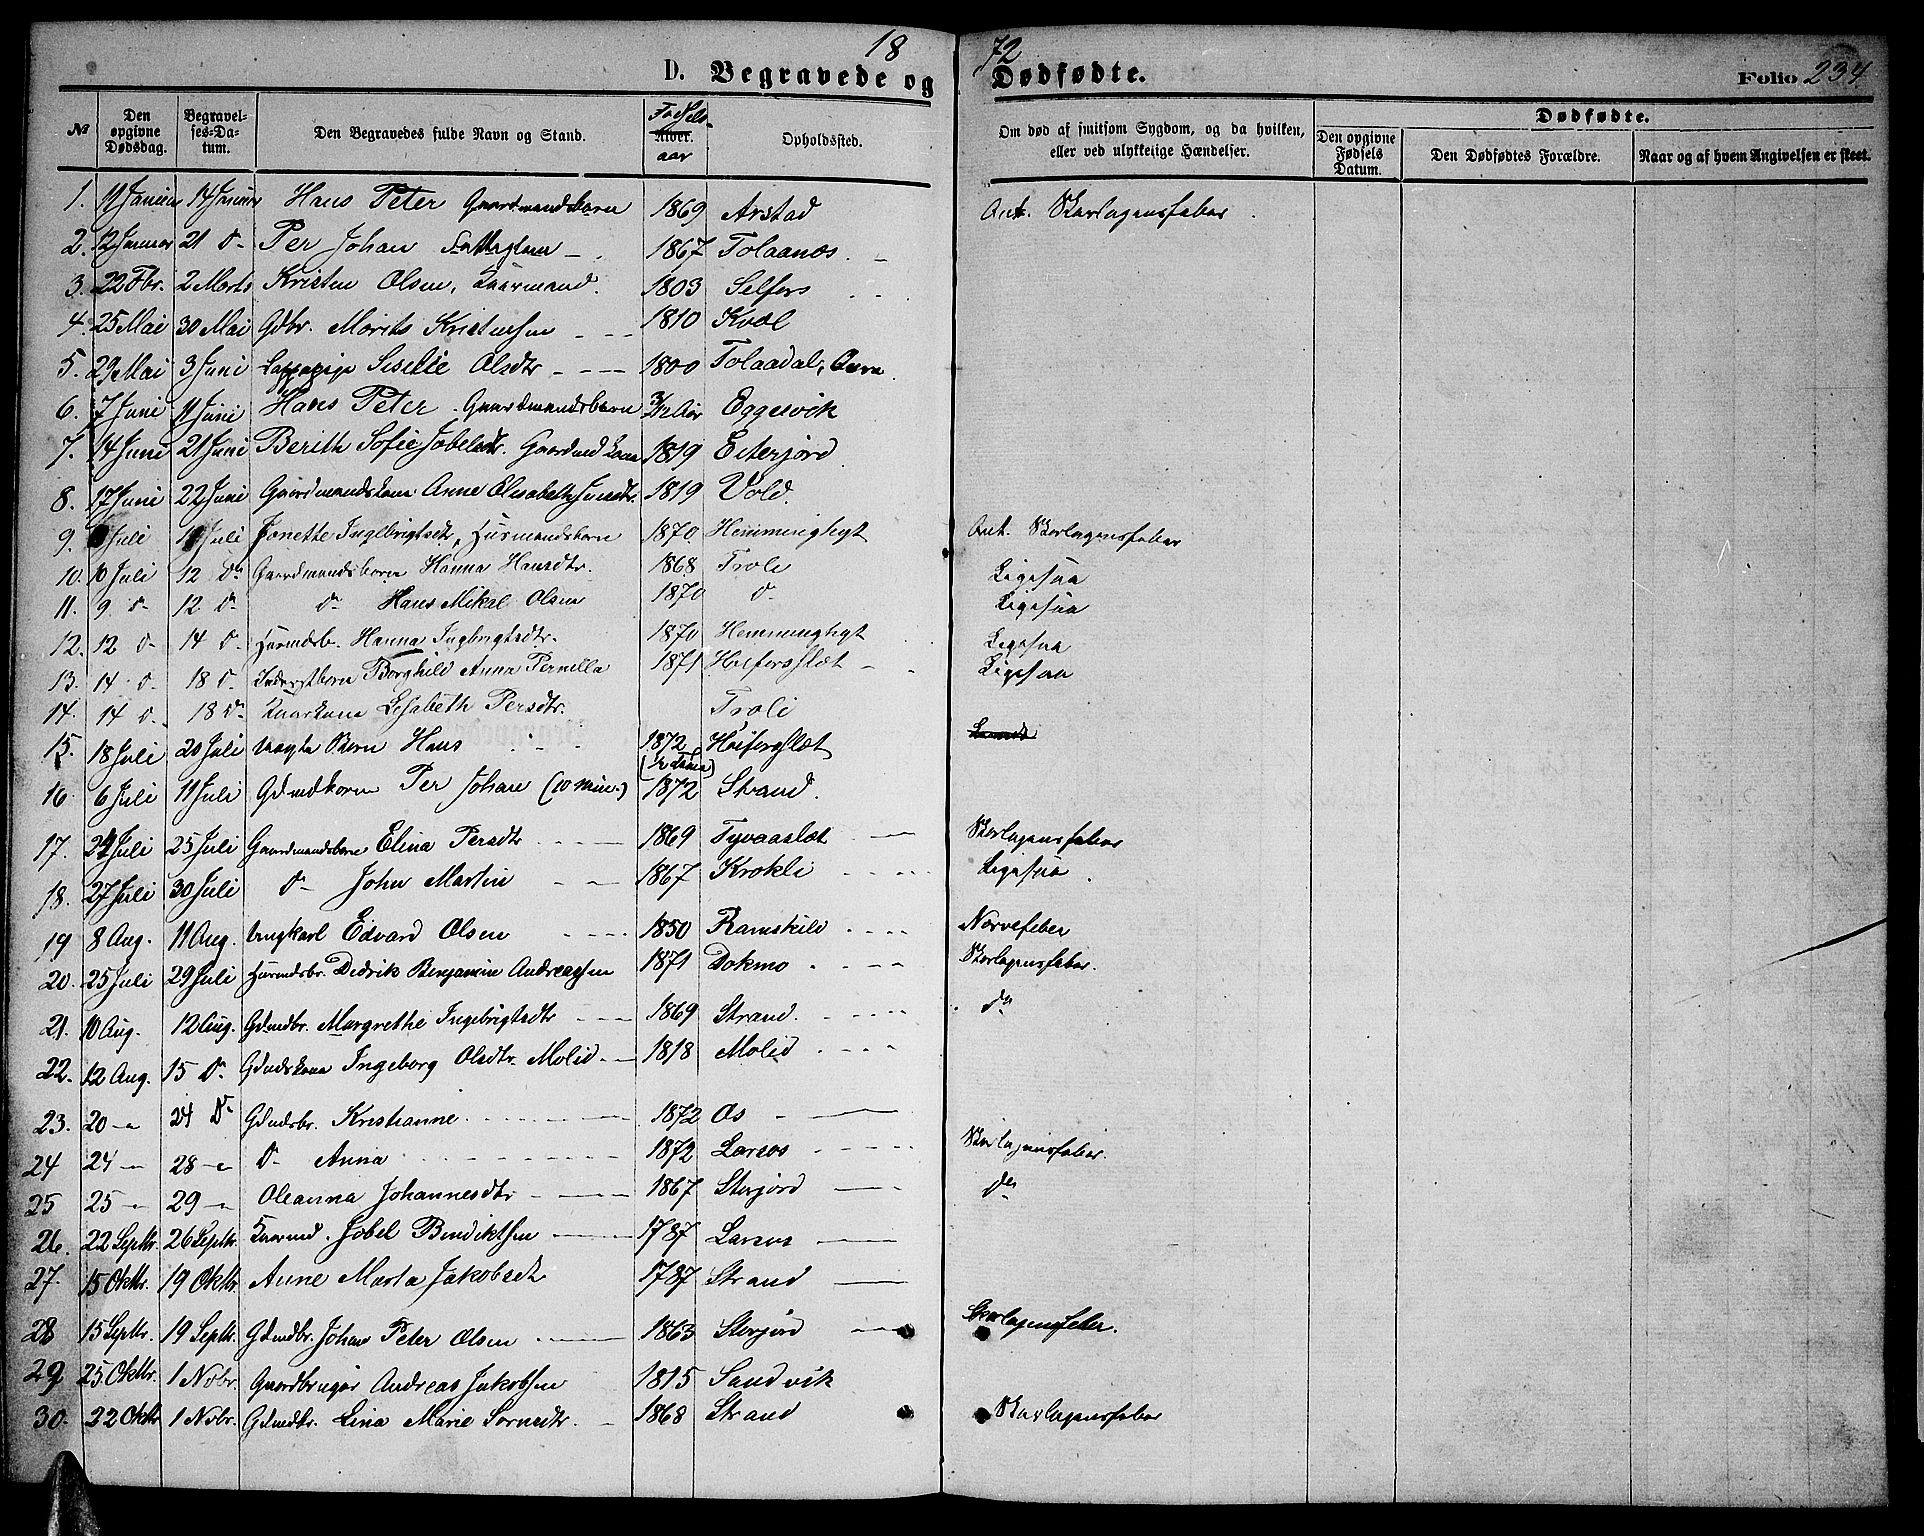 1872
D. Begravede og Dødfødte.
Folio 234
№ | Den opgivne Dødsdag. | Begravelses-Datum. | Den Begravedes fulde Navn og Stand. | Fødselsaar | Opholdssted. | Om død af smitsom Sygdom, og da hvilken, eller ved ulykkelige Hændelser. | Dødfødte. | Den opgivne Fødsels Datum. | Den Dødfødtes Forældre. | Naar og af hvem Angivelsen er skeet.
1. 11 Januar 14 Januar Hans Peter Gaardmandsbarn 1869 Arstad Ant. Skarlagensfeber
2. 12 Januar 21 D- Per Johan 1867 Tolaanæs
3. 22 Fbr. 2 Marts Kristen Olsen, Kaarmand. 1803 Selfors
4. 25 Mai 30 Mai Gdbr. Morits Kristensen 1810 Kvæl
5. 29 Mai 3 Juni Lappepige Siselie Olsdtr 1800 Tolaadal,
6. 7 Juni 11 Juni Hans Peter Gaardmandsbarn 3/12 Aar Eggesvik
7. 14 Juni 21 Juni Berith Sofie Jobelsdtr. Gaardmdkone 1819 Eiterjord
8. 17 Juni 22 Juni Gaardmandskone Anne Elisabeth 1819 Vold.
9. Juli Juli Jonette Ingebrigtsdtr, Husmandsbarn 1870 Hemmingligt Ant. Skarlagensfeber
10. 10 Juli 12 Do Gaardmandsbarn Hanna Hansdtr. 1868 Troli Ligesaa
11. 9. D- 12 D- D- Hans Mikal Olsen 1870 D- Ligesaa
12. 12 D- 14 D- Husmdsb. Hanna Ingbrigtsdtr. 1870 Hemmingligt Ligesaa
13. 14 D- 18 D- Inderstbarn Borghild Anna Pernilla 1871 Høiforsslæt Ligesaa
14. 14 D- 18 D- Kaarkone Lisabeth Persdtr. Troli
15. 18 Juli 20 Juli Uægte Barn Hans 1872 Høiforsslæt
16. 6 Juli 11 Juli Gdmdbarn Per Johan (10 min.) 1872 Strand.
17. 24 Juli 25 Juli Gaardmandsbarn Elina Persdtr 1869 Tyvaaslæt Skarlagensfeber
18. 27 Juli 30 Juli D- John Martin 1867 Krokli Ligesaa
19 8 Aug. 11 Aug. Ungkarl Edvard Olsen 1850 Ramskils Nervefeber
20. 25 Juli 29 Juli Husmdsbr. Didrik Benjamin Andreassen 1871 Dokmo Skarlagensfeber.
21. 10 Aug. 12 Aug. Gdmdbr. Margrethe Ingebrigtsdtr 1869 Strand. do
22. 12 Aug. 15 D- Gdmdskone Ingeborg Olsdtr. Molid 1818 Molid
23. 20 - 24 D- Gdmdsbr. Kristianne 1872 Os
24 24 - 28 - D- Anna 1872 Larsos Skarlagensfeber.
25 25 - 29 - Oleanna Johannesdtr 1867 Storjord do
26. 22 Septbr. 26 Septbr. Kaarmd. Jobel Bendiktsen 1787 Larsos
27. 15 Oktbr. 19 Oktbr. Anne Marta Jakobsdt 1787 Strand
28 15 Septbr. 19 Septbr. Gdmdbr. Johan Peter Olsen 1863 Storjord Skarlagensfeber.
29 25. Oktbr. 1 Nvbr. Gaardbruger Andreas Jakobsen 1815 Sandvik
30. 22 Oktbr 1 Nvbr. Gdmdbr. Lina Marie Sørnsdtr. 1868 Strand Skarlagensfeber